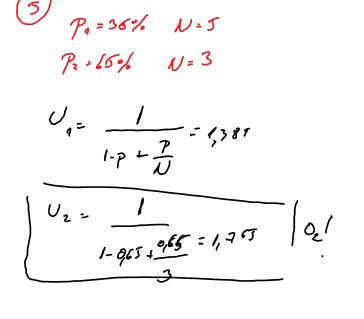 5
P₁ = 35% N = 5
P₂ = 65% N = 3
U₁ = 1 / (1 - p + p/N) = 1,381
U₂ = 1 / (1 - 0,65 + 0,65/3) = 1,765 | O₂!